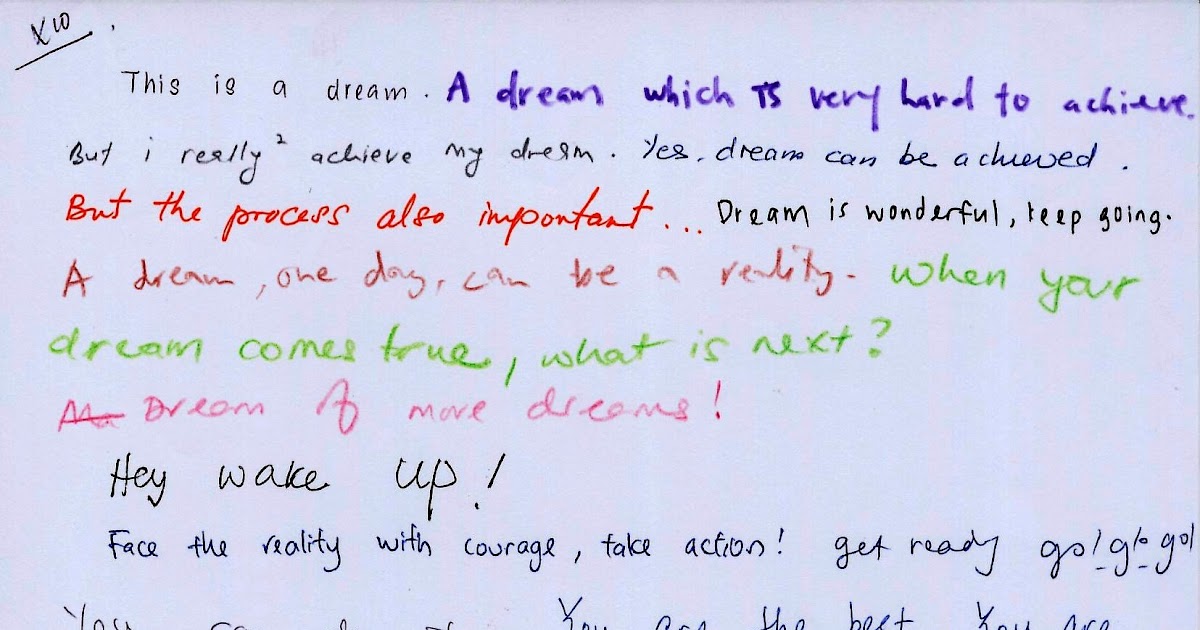 x10
This is a dream. A dream which is very hard to achieve.
But i really² achieve my dream. Yes. dream can be achieved.
But the process also important... Dream is wonderful, keep going.
A dream, one day, can be a reality. When your
dream comes true, what is next?
Dream of more dreams!
Hey wake up!
Face the reality with courage, take action! get ready go! go go!
You can do it. You are the best. You are